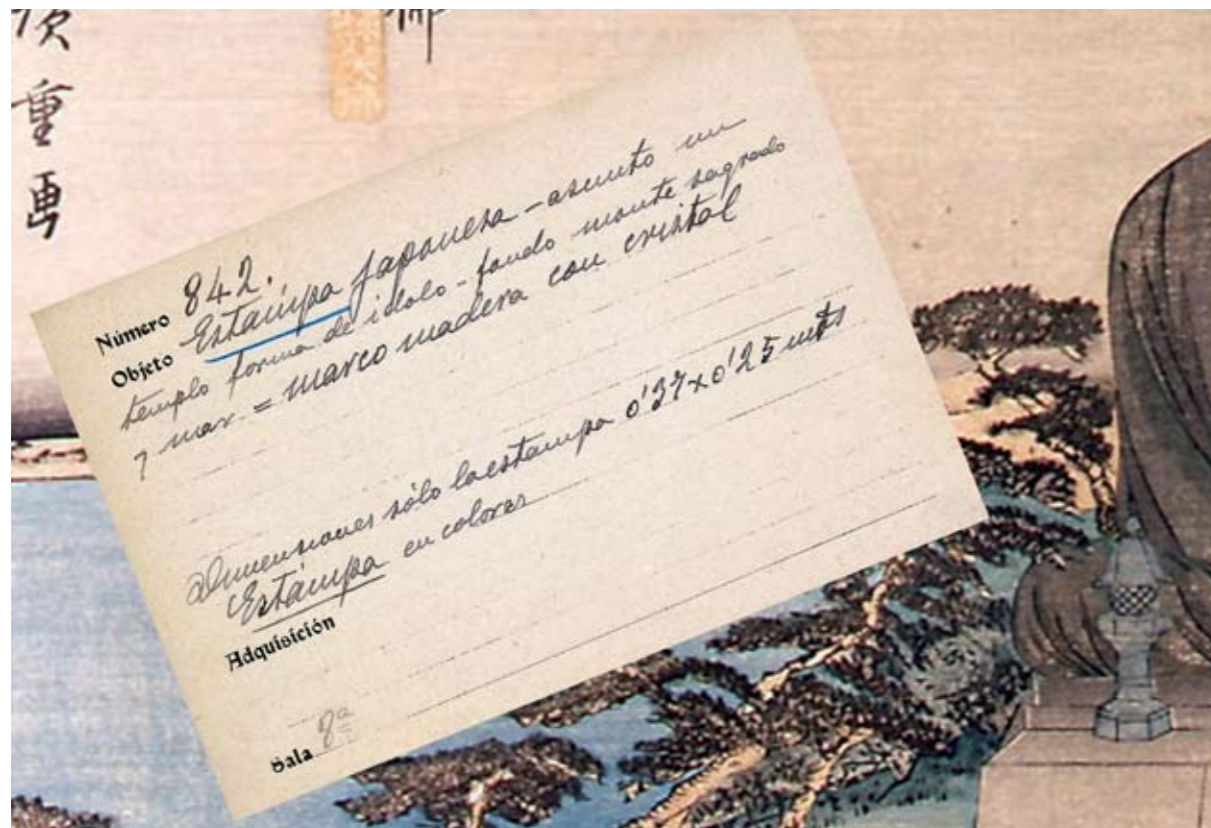 重
画
Número 842.
Objeto Estampa japonesa - asunto un
templo forma de idolo - fondo monte sagrado
y mar = marco madera con cristal
Dimensiones sólo la estampa 0'37x0'25 mts
Estampa en colores
Adquisición
Sala 8ª